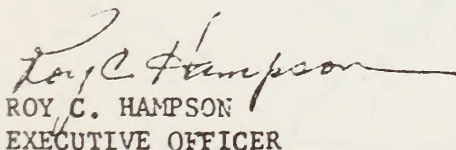 Roy C. Hampson
ROY C. HAMPSON
EXECUTIVE OFFICER